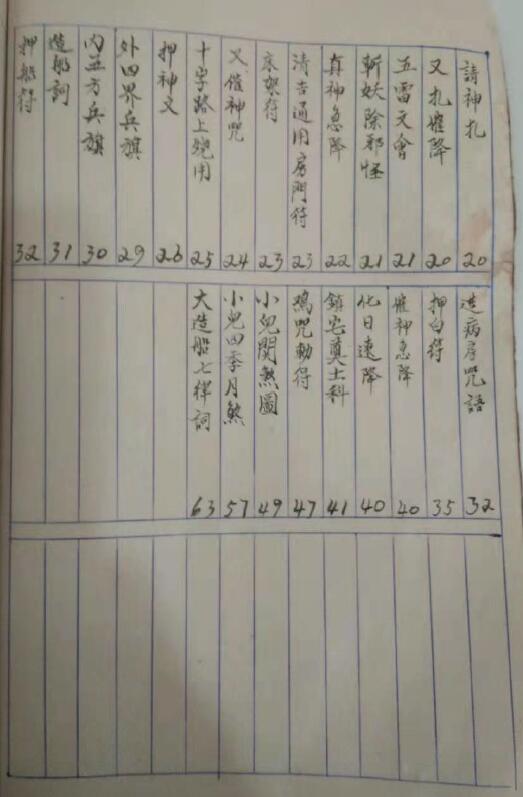 請神扎 20
又扎催降 20
五雷文會 21
斬妖除邪怪 21
真神急降 22
清吉通用房門符 23
床架符 23
又催神咒 24
十字路上燒用 25
押神文 26
外四界兵旗 29
內五方兵旗 30
造船詞 31
押船符 32
進病房咒語 32
押白符 35
催神急降 40
化日速降 40
鎮宅奠土科 41
雞咒勅符 47
小兒関煞圖 49
小兒四季月煞 57
大造船七律詞 63